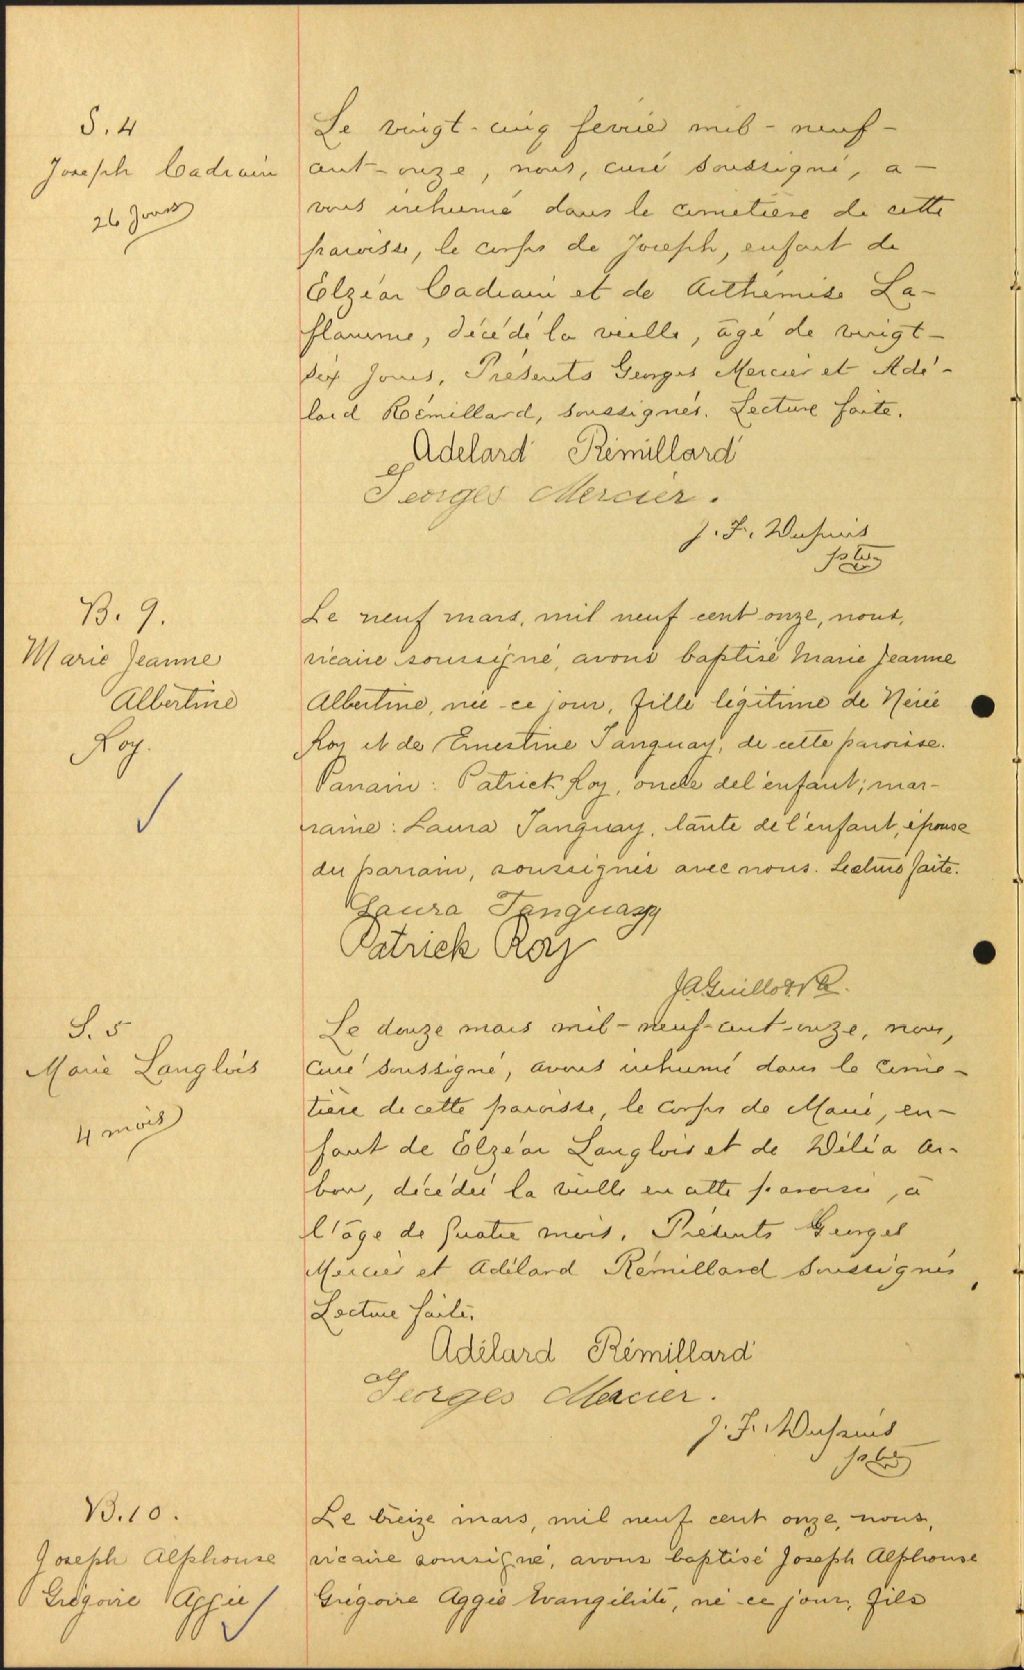 S. 4
Joseph Cadrain
26 Jours
Le vingt-cinq février mil-neuf-
cent-onze, nous, curé soussigné, a-
vons inhumé dans le cimetière de cette
paroisse, le corps de Joseph, enfant de
Elzéar Cadrain et de Arthémise La-
flamme, décédé la veille, âgé de vingt-
six jours. Présents Georges Mercier et Adé-
lard Rémillard, soussignés. Lecture faite.
Adelard Rémillard
Georges Mercier.
J. F. Dupuis
ptre
B. 9.
Marie Jeanne
Albertine
Roy.
Le neuf mars, mil neuf cent onze, nous,
vicaire soussigné, avons baptisé Marie Jeanne
Albertine, née ce jour, fille légitime de Nérée
Roy et de Ernestine Tanguay, de cette paroisse.
Parrain : Patrick Roy, oncle de l'enfant ; mar-
raine : Laura Tanguay, tante de l'enfant, épouse
du parrain, soussignés avec nous. Lecture faite.
Laura Tanguay
Patrick Roy
J A Guillot
S. 5
Marie Langlois
4 mois
Le douze mars mil-neuf-cent-onze, nous,
curé soussigné, avons inhumé dans le cime-
tière de cette paroisse, le corps de Marie, en-
fant de Elzéar Langlois et de Délia Ar-
bour, décédée la veille en cette paroisse, à
l'âge de quatre mois. Présents Georges
Mercier et Adélard Rémillard soussignés,
Lecture faite.
Adélard Rémillard
Georges Mercier.
J. F. Dupuis
ptre
B. 10.
Joseph Alphonse
Grégoire Aggée
Le treize mars, mil neuf cent onze, nous,
vicaire soussigné, avons baptisé Joseph Alphonse
Grégoire Aggée Evangéliste, né ce jour, fils